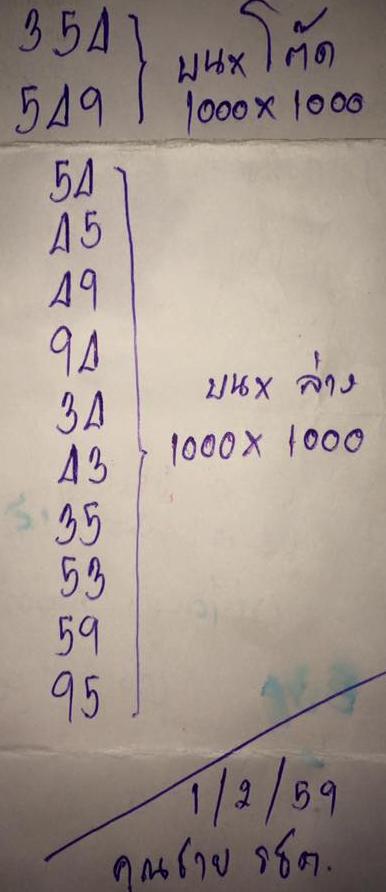 354 } บน x โต๊ด
549 } 1000 x 1000
54
45
49
94
34 บน x ล่าง
43 1000 x 1000
35
53
59
95
1/2/59
คุณชาย